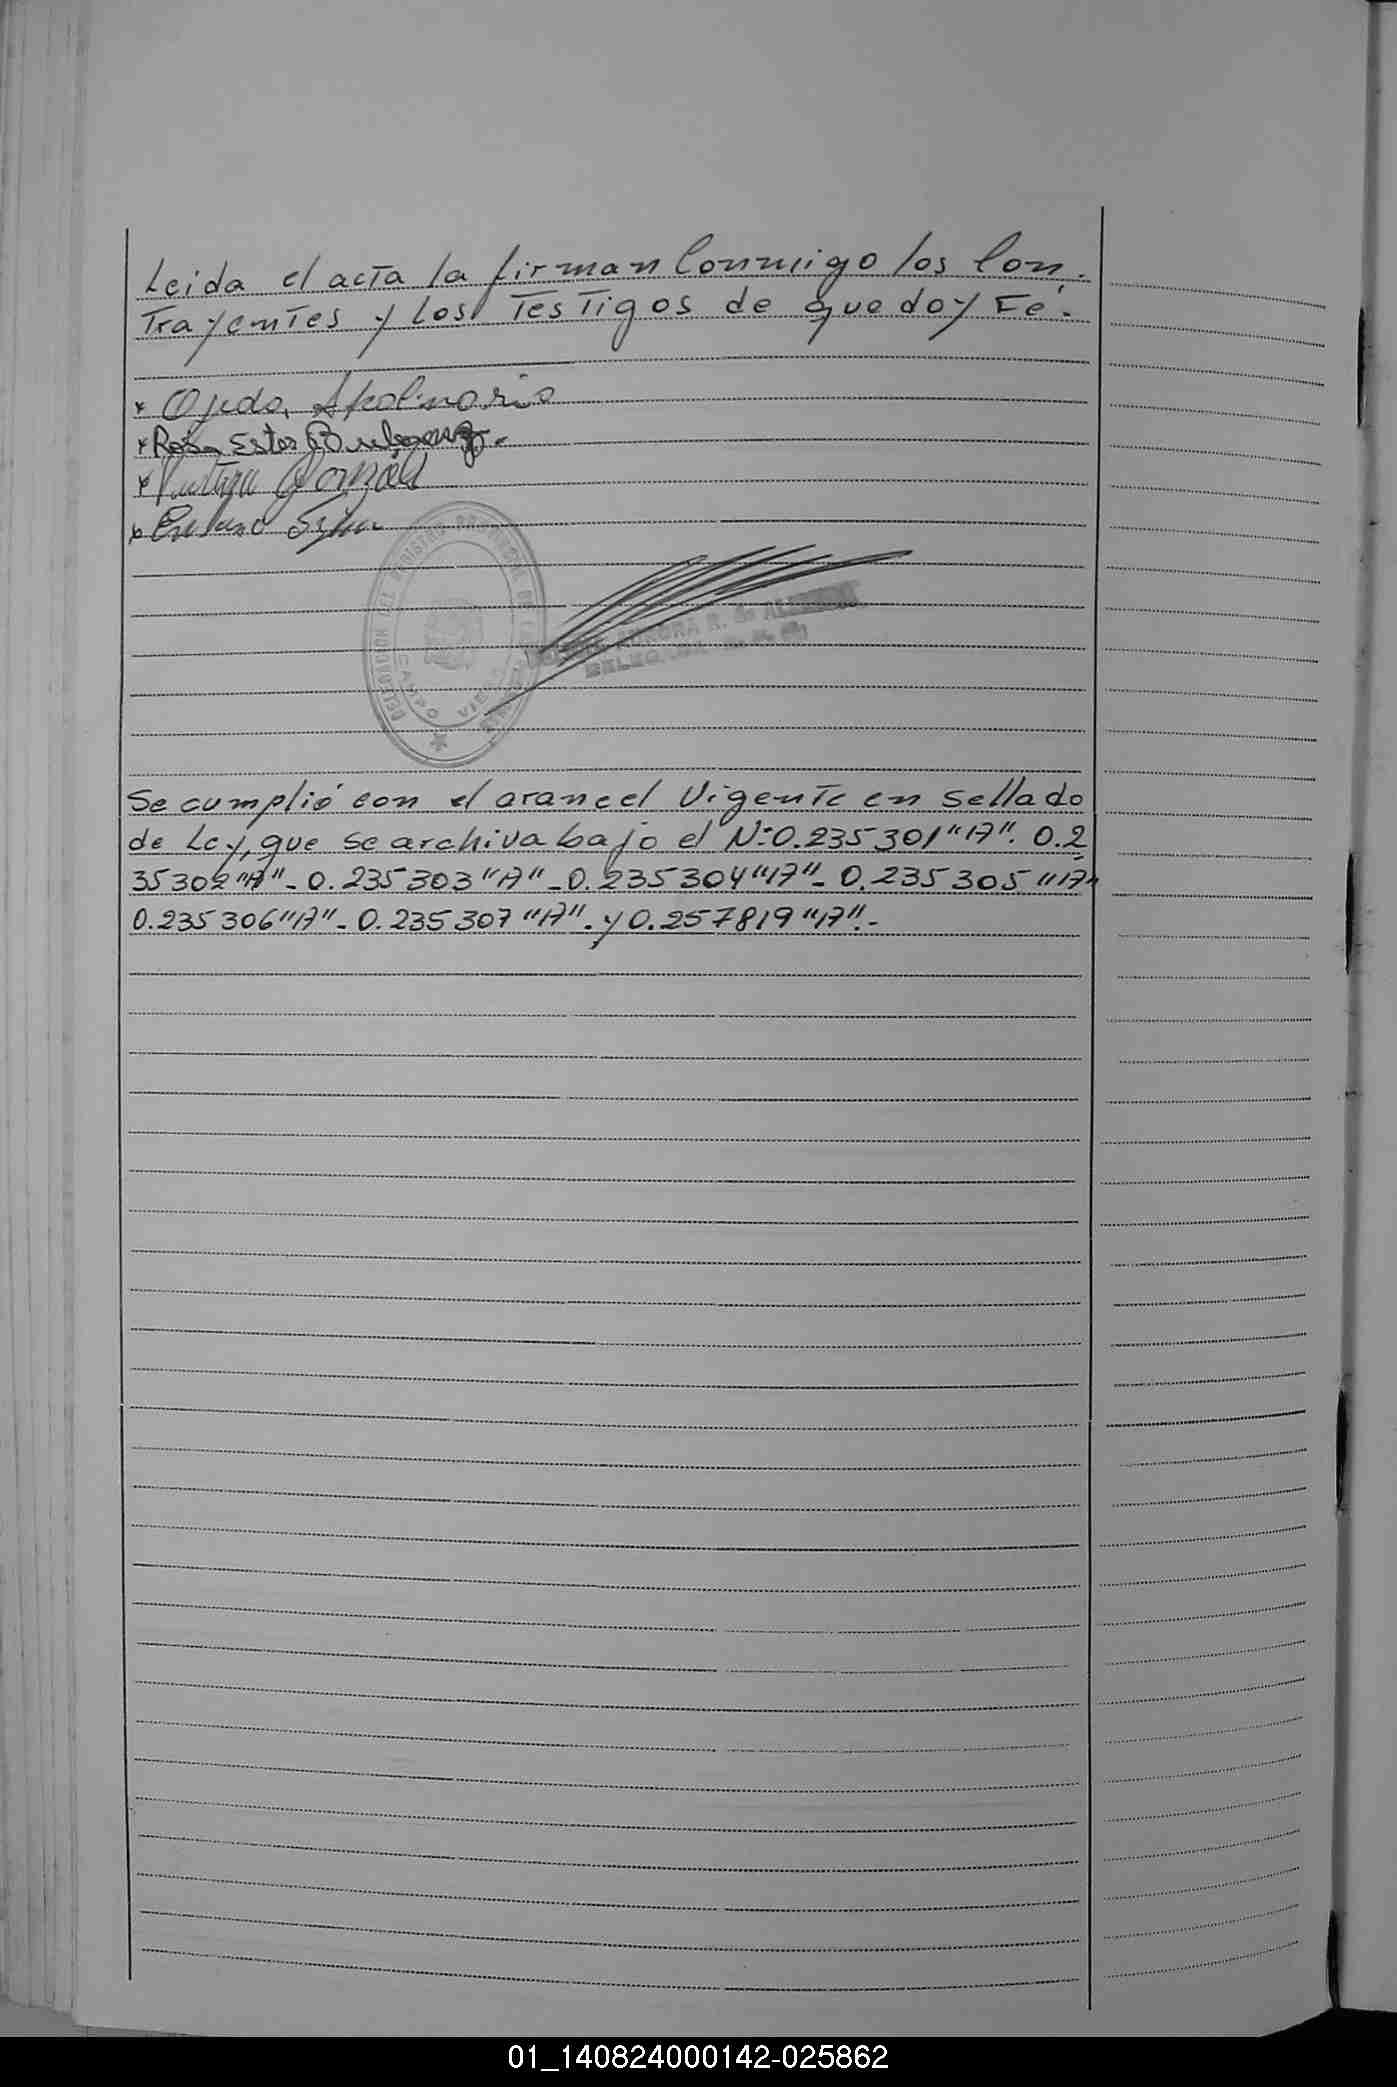 Leida el acta la firman Conmigo los Con.
Trayentes y los Testigos de que doy Fé.
* Ojeda, Apolinario
* Rosa Ester
* González
*
DELEGACION DEL REGISTRO DE
CAMPO VIERA
AURORA R. de
Se cumplió con el arancel Vigente en Sellado
de Ley, que se archiva bajo el Nº 0.235301 "A". 0.2
35302 "A" - 0.235303 "A" - 0.235304 "A" - 0.235305 "A"
0.235306 "A" - 0.235307 "A". y 0.257819 "A". -
01_140824000142-025862